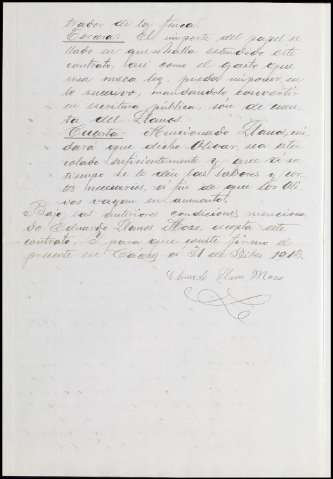 labor de la finca.
Tercera: El importe del papel se
llado en que se halla extendido este
contrato, así como el gasto que
una mera ley, pueda imponer, en
lo sucesivo, mandandolo convertir
en escritura pública, son de cuen
ta del Llanos.
Cuarta: Mencionado Llanos, cui
dará que dicho Olivar, sea arti
culado suficientemente y que a su
tiempo se le dén las labores y cor
tes necesarios, a fin de que los Oli
vos vayan en aumento.
Bajo las anteriores condiciones menciona
do Eduardo Llanos Mozo, acepta este
contrato. Y para que conste firmo el
presente en Caceres a 31 de 1918.
Eduardo Llanos Mozo